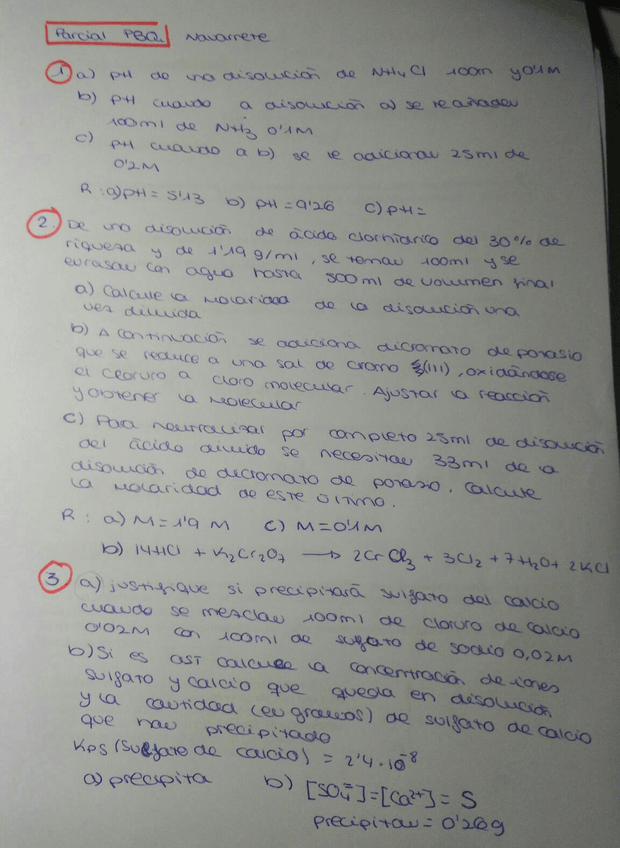 Parcial PBQ. Navarrete
1 a) pH de una disolución de NH4Cl 100m y 0'1M
b) pH cuando a disolución a) se le añaden
100ml de NH3 0'1M
c) pH cuando a b) se le adicionan 25ml de
0'2M
R: a) pH = 5'13 b) pH = 9'26 c) pH =
2. De una disolución de ácido clorhídrico del 30% de
riqueza y de 1'19 g/ml, se toman 100ml y se
enrasan con agua hasta 500ml de volumen final
a) Calcule la molaridad de la disolución una
vez diluida
b) A continuación se adiciona dicromato de potasio
que se reduce a una sal de cromo (III), oxidándose
el cloruro a cloro molecular. Ajustar la reacción
y obtener la molecular
c) Para neutralizar por completo 25ml de disolución
del ácido diluido se necesitan 33ml de la
disolución de dicromato de potasio. Calcule
la molaridad de este último.
R: a) M = 1'9 M c) M = 0'1M
b) 14HCl + K2Cr2O7 → 2CrCl3 + 3Cl2 + 7H2O + 2KCl
3 a) justifique si precipitará sulfato del calcio
cuando se mezclan 100ml de cloruro de calcio
0'02M con 100ml de sulfato de sodio 0,02M
b) Si es así calcule la concentración de iones
sulfato y calcio que queda en disolución
y la cantidad (en gramos) de sulfato de calcio
que han precipitado
Kps (sulfato de calcio) = 2'4·10⁻⁸
a) precipita b) [SO4²⁻] = [Ca²⁺] = S
precipitan = 0'26g